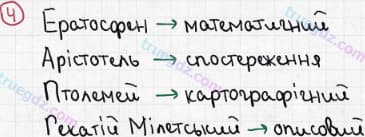 4 Ератосфен → математичний
Арістотель → спостереження
Птолемей → картографічний
Гекатій Мілетський → описовий